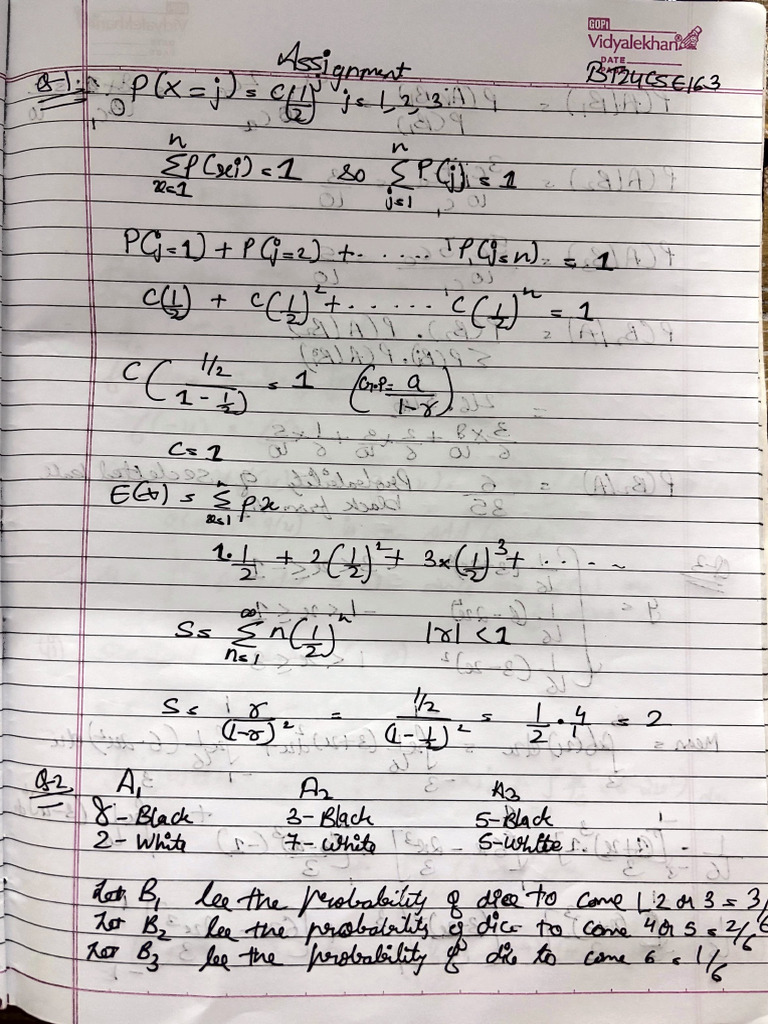 GOPI
Vidyalekhan
DATE
Assignment
BT24CSE163
Q-1:- P(X=j) = C(1/2)^j j = 1, 2, 3.
n n
Σ P(xi) = 1 so Σ P(j) = 1
x=1 j=1
P(j=1) + P(j=2) + ...... P(j=n) = 1
C(1/2) + C(1/2)^2 + ...... C(1/2)^n = 1
C( (1/2)/(1 - 1/2) = 1 (G.P = a/(1-r))
C = 1
E(x) = Σ p x
x=1
1·1/2 + 2(1/2)^2 + 3x(1/2)^3 + ....
S = Σ_{n=1}^{∞} n(1/2)^n |r| < 1
S = r/(1-r)^2 = (1/2)/(1 - 1/2)^2 = 1/2 · 4/1 = 2
Q-2 A1 A2 A3
8 - Black 3 - Black 5 - Black
2 - White 7 - White 5 - White
Let B1 be the probability of dice to come 1, 2 or 3 = 3/6
Let B2 be the probability of dice to come 4 or 5 = 2/6
Let B3 be the probability of dic to come 6 = 1/6